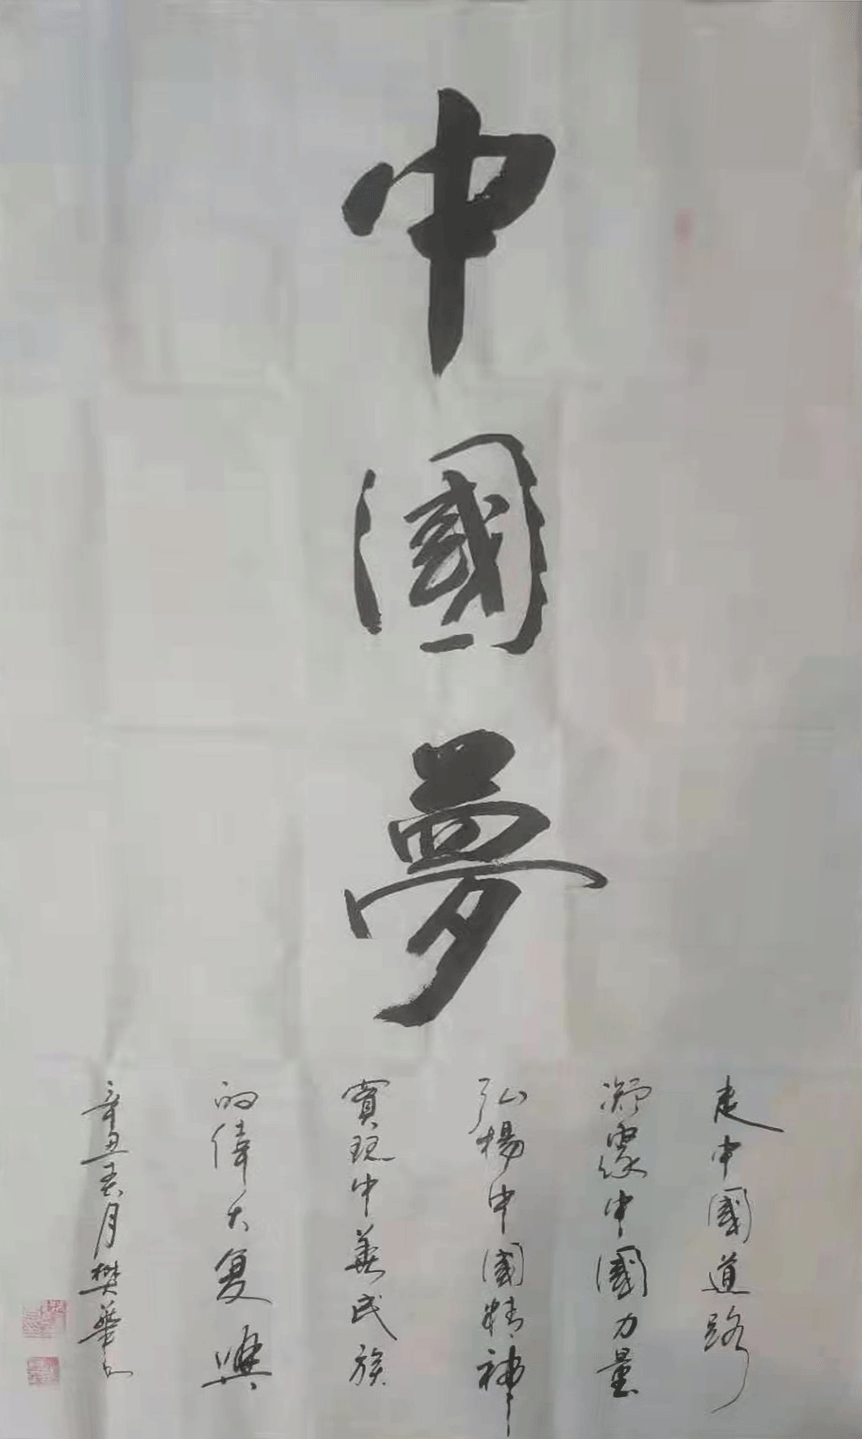 中國夢
走中國道路
凝聚中國力量
弘楊中國精神
實現中華民族
的偉大复興
辛丑春月樊華书